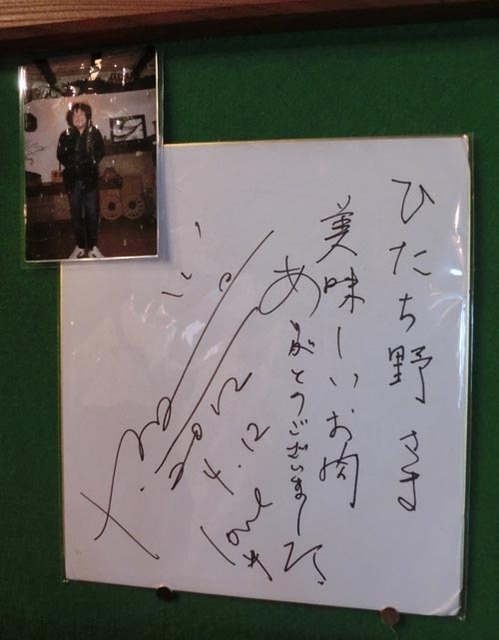 ひたち野 さま
美味しいお肉
ありがとうございました
2012
4.12
love